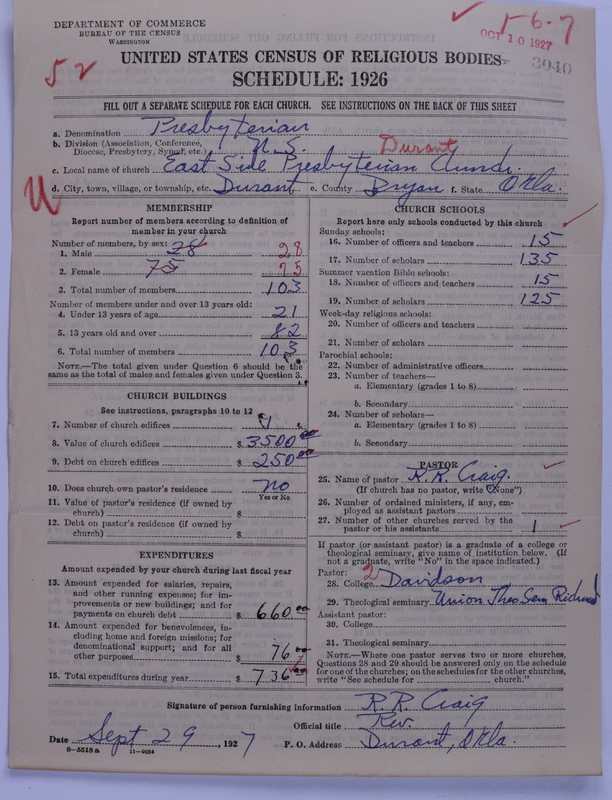 DEPARTMENT OF COMMERCE
BUREAU OF THE CENSUS
WASHINGTON
1-6-7
OCT 10 1927
3040
52
UNITED STATES CENSUS OF RELIGIOUS BODIES
SCHEDULE: 1926
FILL OUT A SEPARATE SCHEDULE FOR EACH CHURCH. SEE INSTRUCTIONS ON THE BACK OF THIS SHEET
a. Denomination Presbyterian
b. Division (Association, Conference, Diocese, Presbytery, Synod, etc.) U.S. Durant
c. Local name of church East Side Presbyterian Church
d. City, town, village, or township, etc. Durant e. County Bryan f. State Okla.
MEMBERSHIP
Report number of members according to definition of
member in your church
Number of members, by sex: 28
1. Male 28
2. Female 75 75
3. Total number of members 103
Number of members under and over 13 years old:
4. Under 13 years of age 21
5. 13 years old and over 82
6. Total number of members 103
NOTE.—The total given under Question 6 should be the
same as the total of males and females given under Question 3.
CHURCH BUILDINGS
See instructions, paragraphs 10 to 12
7. Number of church edifices 1
8. Value of church edifices $ 3500 00
9. Debt on church edifices $ 250 00
10. Does church own pastor's residence No
Yes or No
11. Value of pastor's residence (if owned by
church) $
12. Debt on pastor's residence (if owned by
church) $
EXPENDITURES
Amount expended by your church during last fiscal year
13. Amount expended for salaries, repairs,
and other running expenses; for im-
provements or new buildings; and for
payments on church debt $ 660 00
14. Amount expended for benevolences, in-
cluding home and foreign missions; for
denominational support; and for all
other purposes $ 76 00
15. Total expenditures during year $ 736 00
CHURCH SCHOOLS
Report here only schools conducted by this church
Sunday schools:
16. Number of officers and teachers 15
17. Number of scholars 135
Summer vacation Bible schools:
18. Number of officers and teachers 15
19. Number of scholars 125
Week-day religious schools:
20. Number of officers and teachers
21. Number of scholars
Parochial schools:
22. Number of administrative officers
23. Number of teachers—
a. Elementary (grades 1 to 8)
b. Secondary
24. Number of scholars—
a. Elementary (grades 1 to 8)
b. Secondary
PASTOR
25. Name of pastor R. R. Craig.
(If church has no pastor, write "None")
26. Number of ordained ministers, if any, em-
ployed as assistant pastors
27. Number of other churches served by the
pastor or his assistants 1
If pastor (or assistant pastor) is a graduate of a college or
theological seminary, give name of institution below. (If
not a graduate, write "No" in the space indicated.)
Pastor: 2
28. College Davidson
29. Theological seminary Union Theo Sem Richmond
Assistant pastor:
30. College
31. Theological seminary
NOTE.—Where one pastor serves two or more churches,
Questions 28 and 29 should be answered only on the schedule
for one of the churches; on the schedules for the other churches,
write "See schedule for church."
Signature of person furnishing information R. R. Craig
Official title Rev.
Date Sept 29, 1927 P. O. Address Durant, Okla.
8-5518a 11-9034